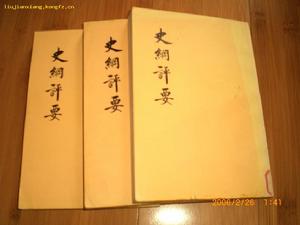 liujianxiang.kongfz.cn
史綱評要
史綱評要
史綱評要
2006/2/26 1:41